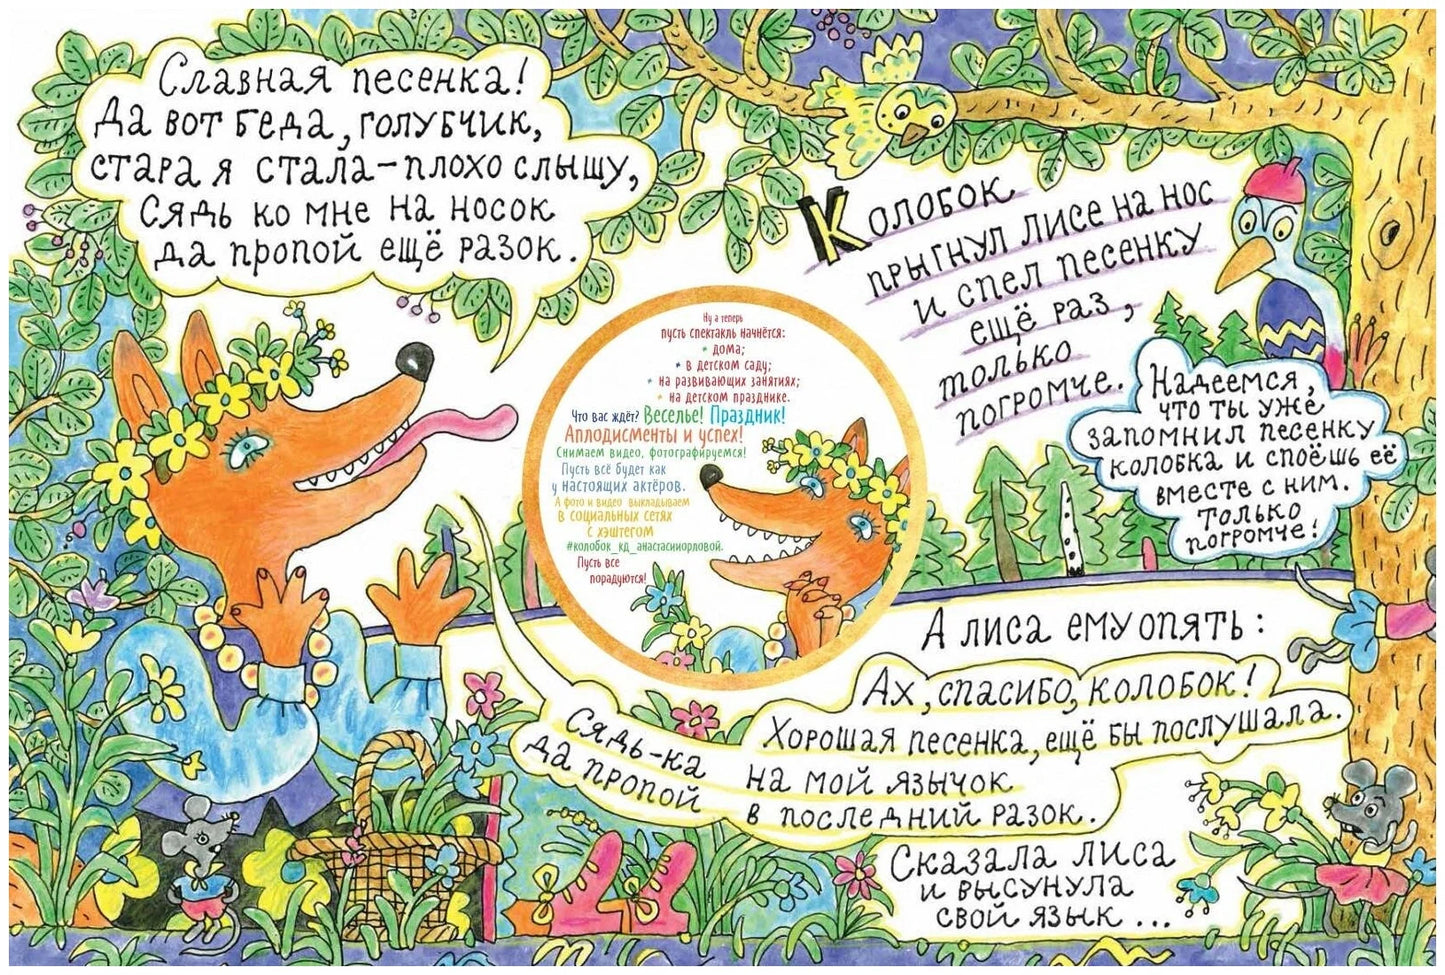 Славная песенка!
Да вот беда, голубчик,
стара я стала - плохо слышу,
Сядь ко мне на носок
да пропой ещё разок.
Колобок
прыгнул лисе на нос
и спел песенку
ещё раз,
только
погромче.
Надеемся,
что ты уже
запомнил песенку
колобка и споёшь её
вместе с ним.
Только
погромче!
Ну а теперь
пусть спектакль начнётся:
* дома;
* в детском саду;
* на развивающих занятиях;
* на детском празднике.
Что вас ждёт? Веселье! Праздник!
Аплодисменты и успех!
Снимаем видео, фотографируемся!
Пусть всё будет как
у настоящих актёров.
А фото и видео выкладываем
в социальных сетях
с хэштегом
#колобок_кд_анастасииорловой.
Пусть все
порадуются!
А лиса ему опять:
Ах, спасибо, колобок!
Хорошая песенка, ещё бы послушала.
Сядь-ка на мой язычок
да пропой в последний разок.
Сказала лиса
и высунула
свой язык...